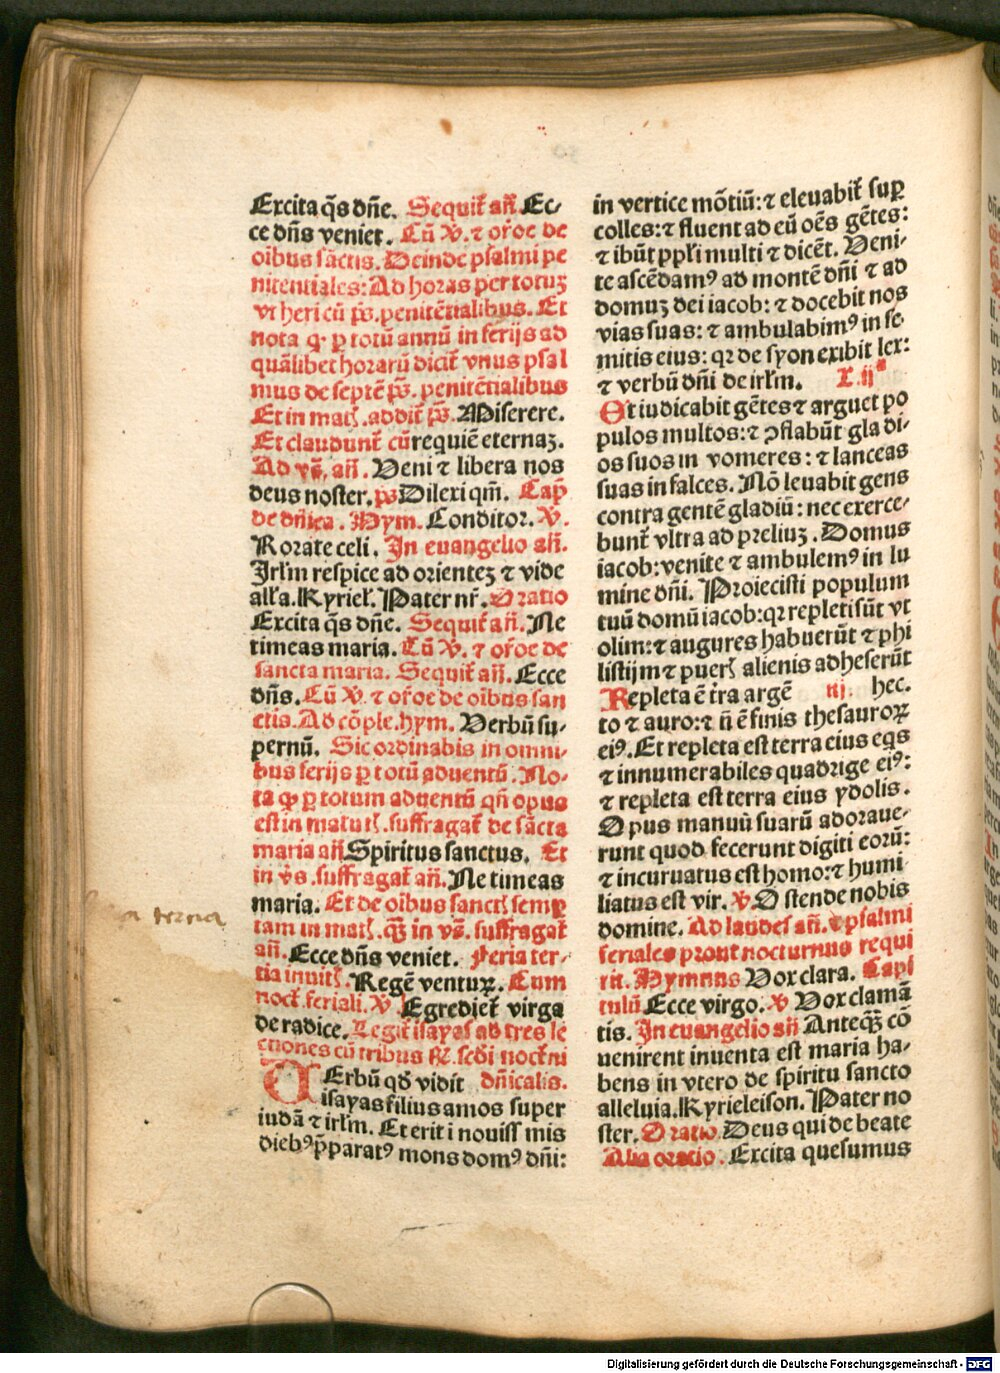 Excita q̄s dn̄e. Sequit̄ añ. Ec⸗
ce dn̄s veniet. Cū V̄. ⁊ or̄oe de
oībus sāctis. Deinde psalmi pe
nitentiales: Ad horas per totuȝ
vt heri cū ps̄. penitētialibus. Et
nota q̄ ꝑ totū annū in ferijs ad
quālibet horarū dicit̄ vnus psal
mus de septē ps̄. penitētialibus
Et in mat̄. addit̄ ps̄. Miserere.
Et claudunt̄ cū requiē eternaȝ.
Ad vs̄. añ. Veni ⁊ libera nos
deus noster. ps̄ Dilexi qm̄. Cap̄
de dn̄ica. Hym. Conditor. V̄.
Rorate celi. In euangelio añ.
Irl̄m respice ad orienteȝ ⁊ vide
all̄a. Kyriel̄. Pater nr̄. Oratio
Excita q̄s dn̄e. Sequit̄ añ. Ne
timeas maria. Cū V̄. ⁊ or̄oe de
sancta maria. Sequit̄ añ. Ecce
dn̄s. Cū V̄. ⁊ or̄oe de oībus san
ctis. Ad cōple. hym. Verbū su⸗
pernū. Sic ordinabis in omni⸗
bus ferijs ꝑ totū aduentū. No⸗
ta ꝙ ꝑ totum aduentū qn̄ opus
est in matut̄. suffragat̄ de sācta
maria añ Spiritus sanctus. Et
in vs̄. suffragat̄ añ. Ne timeas
maria. Et de oībus sanct̄ semꝑ
tam in mat̄. qȝ̄ in vs̄. suffragat̄
añ. Ecce dn̄s veniet. Feria ter⸗
tia inuit̄. Regē venturꝝ. Cum
noct̄. feriali. V̄ Egrediet̄ virga
de radice. Legit̄ isayas ad tres le
ctiones cū tribus R̄. scdī noct̄ni
VErbū qd̄ vidit dn̄icalis.
isayas filius amos super
iudā ⁊ irl̄m. Et erit ī nouiss mis
diebꝰ p̄paratꝰ mons domꝰ dn̄i:
in vertice mōtiū: ⁊ eleuabit̄ suꝑ
colles: ⁊ fluent ad eū oēs gētes:
⁊ ibūt ppl̄i multi ⁊ dicēt. Veni⸗
te ascēdamꝰ ad montē dn̄i ⁊ ad
domuȝ dei iacob: ⁊ docebit nos
vias suas: ⁊ ambulabimꝰ in se⸗
mitis eius: qꝛ de syon exibit lex:
⁊ verbū dn̄i de irl̄m. L. ijᵃ
Et iudicabit gētes ⁊ arguet po
pulos multos: ⁊ ꝯflabūt gladi⸗
os suos in vomeres: ⁊ lanceas
suas in falces. Nō leuabit gens
contra gentē gladiū: nec exerce⸗
bunt̄ vltra ad preliuȝ. Domus
iacob: venite ⁊ ambulemꝰ in lu
mine dn̄i. Proiecisti populum
tuū domū iacob: qꝛ repleti sūt vt
olim: ⁊ augures habuerūt ⁊ phi
listijm ⁊ puer̄ alienis adheserūt
Repleta ē tr̄a argē iij. hec.
to ⁊ auro: ⁊ n̄ ē finis thesaurorꝝ
eiꝰ. Et repleta est terra eius eqs
⁊ innumerabiles quadrige eiꝰ:
⁊ repleta est terra eius ydolis.
Opus manuū suarū adoraue⸗
runt quod fecerunt digiti eorū:
⁊ incuruatus est homo: ⁊ humi⸗
liatus est vir. V̄. Ostende nobis
domine. Ad laudes añ. ⁊ psalmi
feriales prout nocturnus requi
rit. Hymnus Vox clara. Capi
tulū Ecce virgo. V̄ Vox clamā
tis. In euangelio añ Anteqȝ̄ cō
uenirent inuenta est maria ha⸗
bens in vtero de spiritu sancto
alleluia. Kyrieleison. Pater no
ster. Oratio. Deus qui de beate
Alia oratio. Excita quesumus
Digitalisierung gefördert durch die Deutsche Forschungsgemeinschaft - DFG